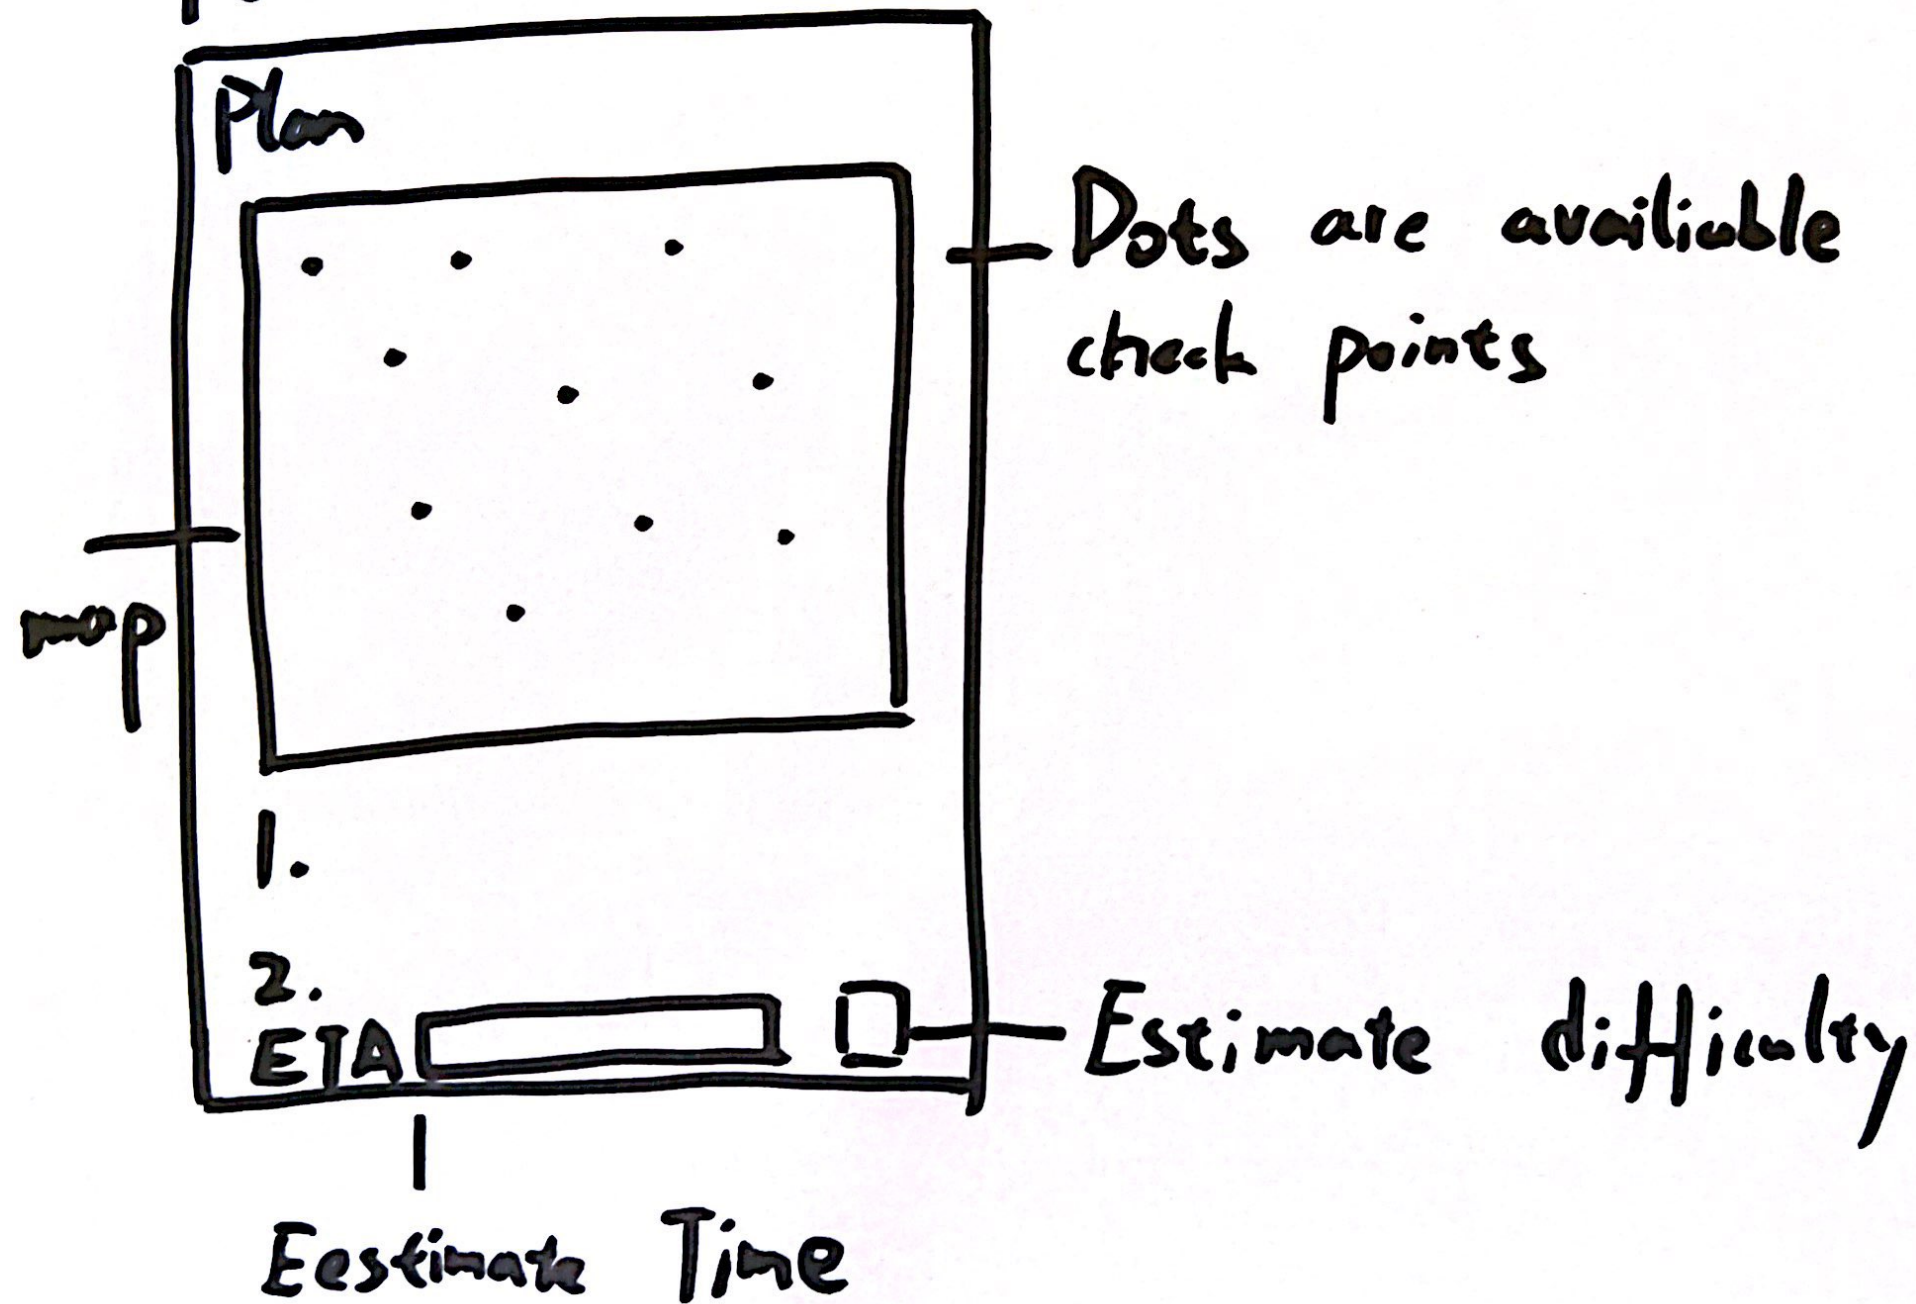 Plan
Dots are availiable
check points
map
1.
2.
ETA
Estimate difficulty
Eestimate Time